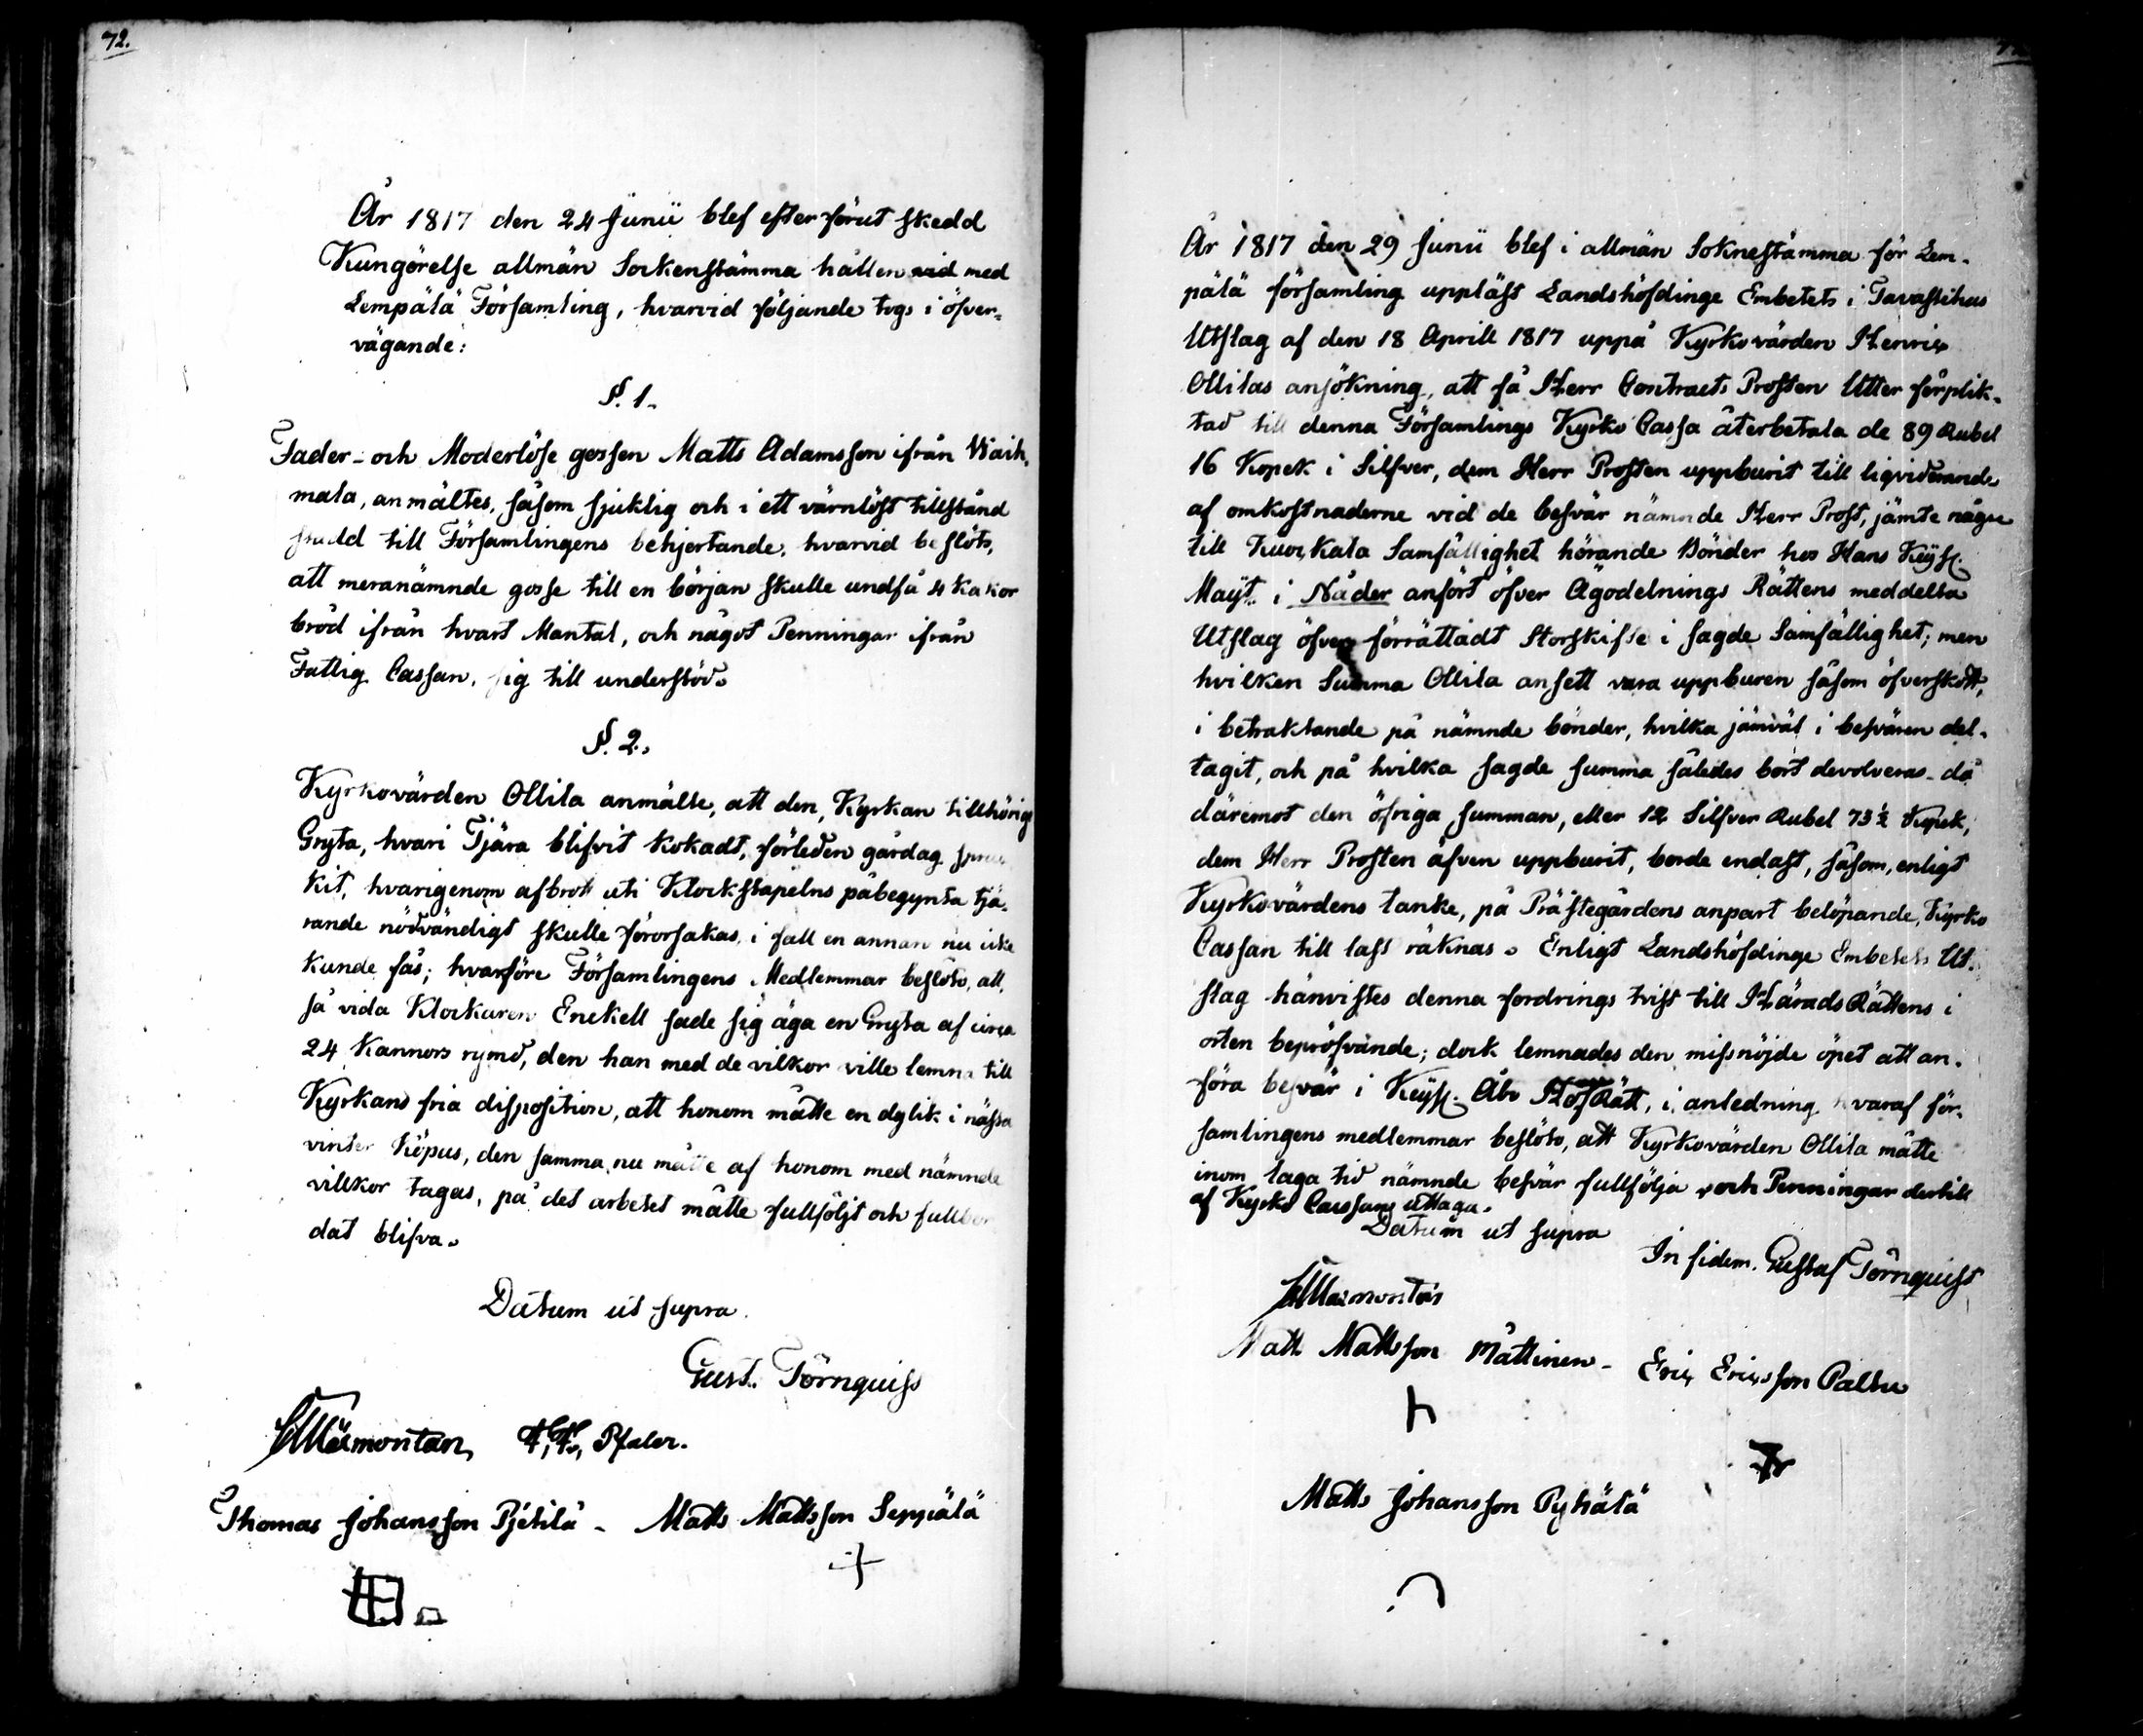 72.
År 1817 den 24 Junii blef efter förut skedd
Kungörelse allmän Sockenstämma hållen med
Lempälä Församling, hvarvid följande togs i öfver-
vägande:
§. 1.
Fader- och Moderlöse gossen Matts Adamsson ifrån Waih-
mala, anmältes, såsom sjuklig och i ett värnlöst tillstånd
stadd till Församlingens behjertande, hvarvid beslöts,
att meranämnde gosse till en början skulle undfå 4 kakor
bröd ifrån hvart Mantal, och något Penningar ifrån
Fattig Cassan, sig till understöd.
§. 2.
Kyrkovärden Ollila anmälte, att den, Kyrkan tillhörige
Gryta, hvari Tjära blifvit kokadt, förleden gårdag spruc-
kit, hvarigenom afbrott uti Klockstapelns påbegynta tjä-
rande nödvändigt skulle förorsakas, i fall en annan nu icke
kunde fås; hvarföre Församlingens Medlemmar beslöto, att,
så vida Klockaren Enckell sade sig äga en Gryta af circa
24 Kannors rymd, den han med de vilkor ville lemna till
Kyrkans fria disposition, att honom måtte en dylik i nästa
vinter köpas, den samma nu måtte af honom med nämnde
villkor tagas, på det arbetet måtte fullföljt och fullbor-
dat blifva.
Datum ut supra.
Gust. Törnquist
Mármontan, F. F. Pfaler.
Thomas Johansson Pjetilä - Matts Mattsson Seppälä
År 1817 den 29 Junii blef i allmän Soknestämma för Lem-
pälä församling uppläst Landshöfdinge Embetets i Tavastehus
Utslag af den 18 Aprill 1817 uppå Kyrkovärden Henric
Ollilas ansökning, att få Herr Contracts Prosten Utter förplik-
tad till denna Församlings Kyrko Cassa återbetala de 89 Rubel
16 Kopek i Silfver, dem Herr Prosten uppburit till liqviderande
af omkostnaderne vid de besvär nämnde Herr Prost, jämte några
till Kuokkala Samfällighet hörande Bönder hos Hans Keijs.
Maijt. i Nåder anfört öfver Ägodelnings Rättens meddelta
Utslag öfver förrättadt Storskifte i sagde Samfällighet; men
hvilken Summa Ollila ansett vara uppburen såsom öfverskott,
i betraktande på nämnde bönder, hvilka jämväl i besvären del-
tagit, och på hvilka sagde summa således bort devolveras - då
däremot den öfriga summan, eller 12 Silfver Rubel 73½ Kopek,
dem Herr Prosten äfven uppburit, borde endast, såsom, enligt
Kyrkovärdens tanke, på Prästegårdens anpart belöpande, Kyrko
Cassan till last räknas. Enligt Landshöfdinge Embetets Ut-
slag hänvistes denna fordrings tvist till Härads Rättens i
orten bepröfvande; dock lemnades den missnöjde öpet att an-
föra besvär i Keijs. Åbo HofRätt, i anledning hvaraf för-
samlingens medlemmar beslöto, att Kyrkovärden Ollila måtte
inom laga tid nämnde besvär fullfölja och Penningar dertill
af Kyrko Cassans uttaga.
Datum ut supra
In fidem. Gustaf Törnquist
Mármontan
Matts Mattsson Mattinen - Eric Ericsson Palhu
Matts Johansson Pyhälä